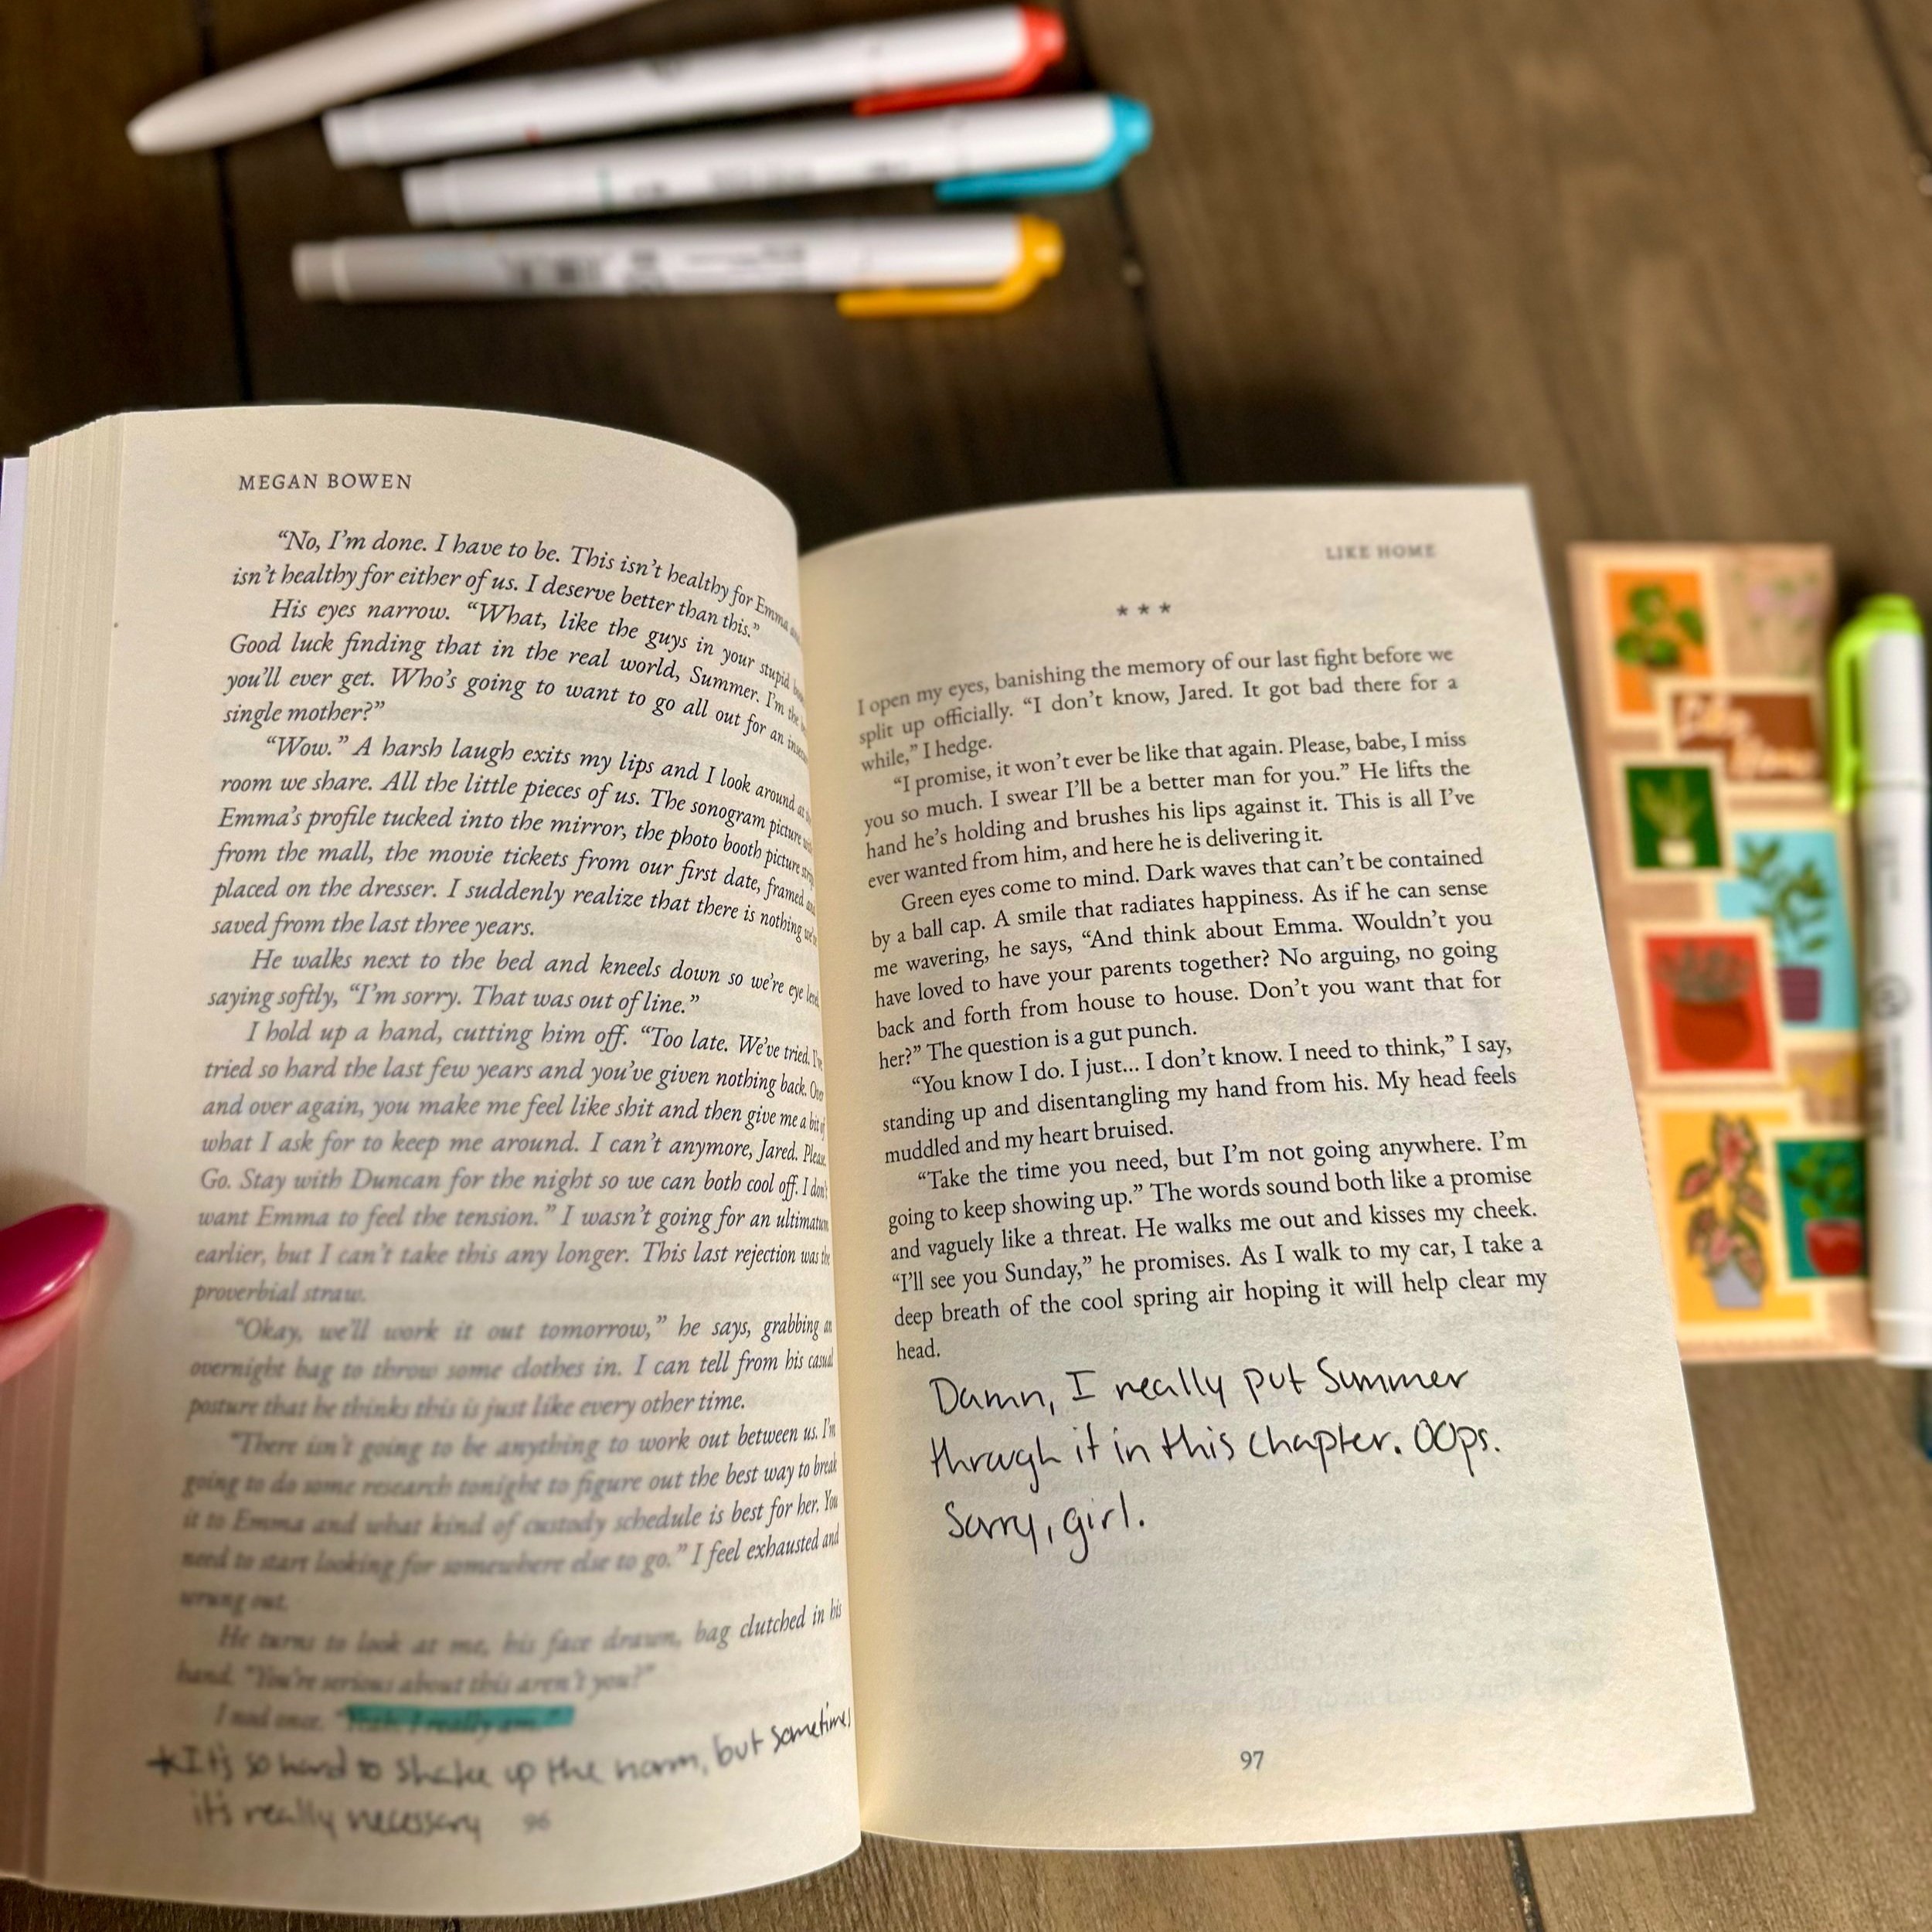 MEGAN BOWEN
“No, I’m done. I have to be. This isn’t healthy for Emma
isn’t healthy for either of us. I deserve better than this.”
His eyes narrow. “What, like the guys in your stupid
Good luck finding that in the real world, Summer. I’m the
you’ll ever get. Who’s going to want to go all out for an
single mother?”
“Wow.” A harsh laugh exits my lips and I look around
room we share. All the little pieces of us. The sonogram picture
Emma’s profile tucked into the mirror, the photo booth picture
from the mall, the movie tickets from our first date, framed
placed on the dresser. I suddenly realize that there is nothing
saved from the last three years.
He walks next to the bed and kneels down so we’re eye
saying softly, “I’m sorry. That was out of line.”
I hold up a hand, cutting him off. “Too late. We’ve tried.
tried so hard the last few years and you’ve given nothing back. Over
and over again, you make me feel like shit and then give me a bit of
what I ask for to keep me around. I can’t anymore, Jared. Please.
Go. Stay with Duncan for the night so we can both cool off. I don’t
want Emma to feel the tension.” I wasn’t going for an ultimatum
earlier, but I can’t take this any longer. This last rejection was the
proverbial straw.
“Okay, we’ll work it out tomorrow,” he says, grabbing an
overnight bag to throw some clothes in. I can tell from his casual
posture that he thinks this is just like every other time.
“There isn’t going to be anything to work out between us. I’m
going to do some research tonight to figure out the best way to break
it to Emma and what kind of custody schedule is best for her. You
need to start looking for somewhere else to go.” I feel exhausted and
wrung out.
He turns to look at me, his face drawn, bag clutched in his
hand. “You’re serious about this aren’t you?”
I nod once. “Yeah. I really am.”
*It's so hard to shake up the norm, but sometimes
it's really necessary
96
LIKE HOME
* * *
I open my eyes, banishing the memory of our last fight before we
split up officially. “I don’t know, Jared. It got bad there for a
while,” I hedge.
“I promise, it won’t ever be like that again. Please, babe, I miss
you so much. I swear I’ll be a better man for you.” He lifts the
hand he’s holding and brushes his lips against it. This is all I’ve
ever wanted from him, and here he is delivering it.
Green eyes come to mind. Dark waves that can’t be contained
by a ball cap. A smile that radiates happiness. As if he can sense
me wavering, he says, “And think about Emma. Wouldn’t you
have loved to have your parents together? No arguing, no going
back and forth from house to house. Don’t you want that for
her?” The question is a gut punch.
“You know I do. I just... I don’t know. I need to think,” I say,
standing up and disentangling my hand from his. My head feels
muddled and my heart bruised.
“Take the time you need, but I’m not going anywhere. I’m
going to keep showing up.” The words sound both like a promise
and vaguely like a threat. He walks me out and kisses my cheek.
“I’ll see you Sunday,” he promises. As I walk to my car, I take a
deep breath of the cool spring air hoping it will help clear my
head.
Damn, I really put Summer
through it in this chapter. OOps.
Sorry, girl.
97